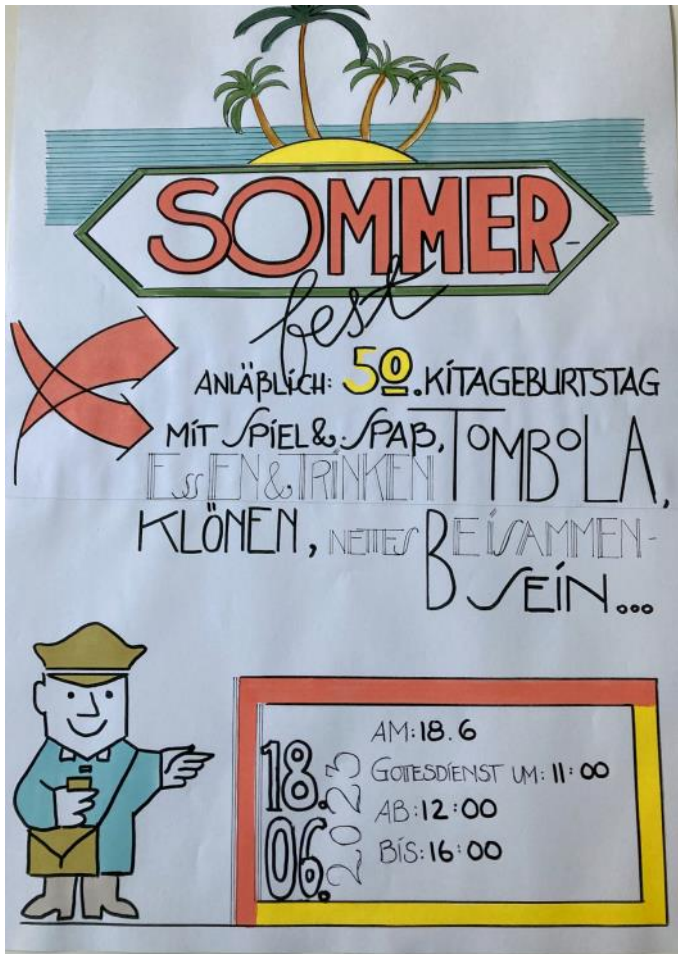 SOMMER-
fest
ANLÄßLICH: 50. KITAGEBURTSTAG
MIT SPIEL & SPAß, TOMBOLA,
ESSEN & TRINKEN
KLÖNEN, NETTES BEISAMMEN-
SEIN...
18.
06.
2023
AM: 18.6
GOTTESDIENST UM: 11:00
AB: 12:00
BIS: 16:00